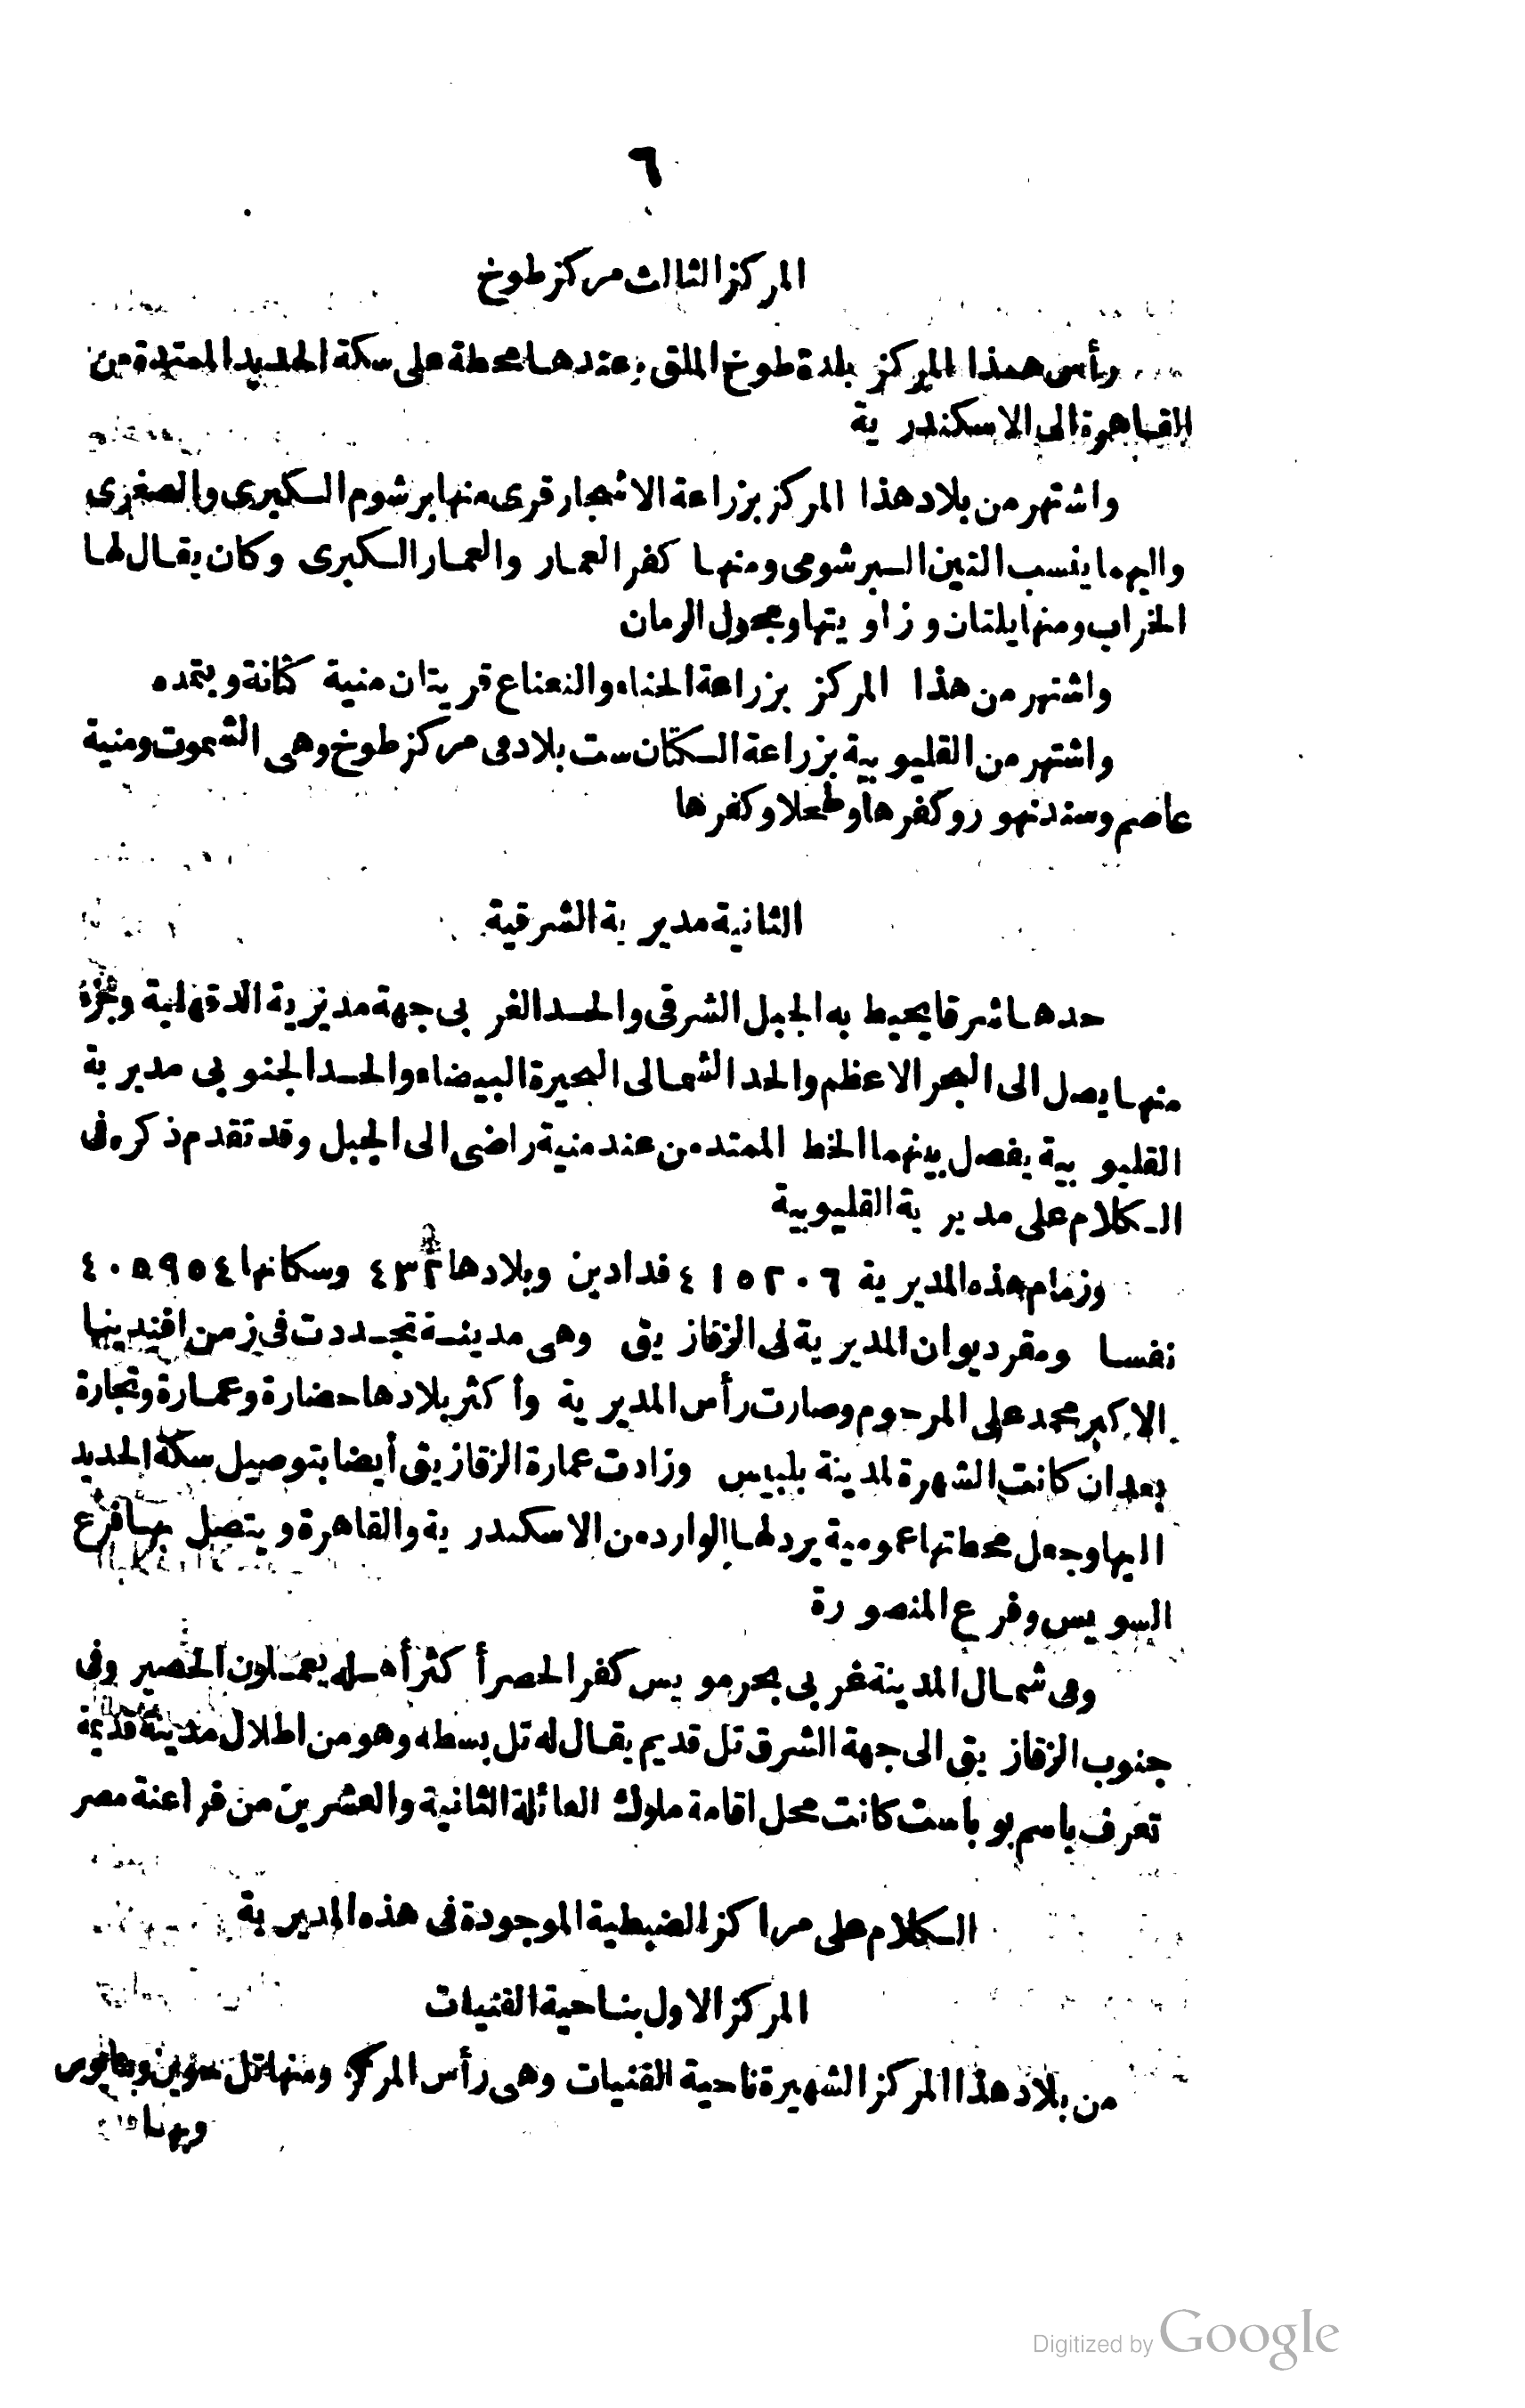 ٦
المركز الثالث مركز طوخ
رأس هذا المركز بلدة طوخ الملق وعندها محطة على سكة الحديد الممتدة من
القاهرة الى الاسكندرية
واشتهر من بلاد هذا المركز بزراعة الاشجار قرى منها برشوم الكبرى والصغرى
واليهما ينسب التين البرشومى ومنها كفر العمار والعمار الكبرى وكان يقال لها
الخراب ومنها يلتان وزاويتها ومجول الرمان
واشتهر من هذا المركز بزراعة الحناء والنعناع قريتان منية كنانة وبتمده
واشتهر من القليوبية بزراعة الكتان ست بلاد فى مركز طوخ وهى الشموت ومنية
عاصم وسندنهور وكفرها وطحلا وكفرها
الثانية مديرية الشرقية
حدها شرقا يحيط به الجبل الشرقى والحد الغربى جهة مديرية الدقهلية وجزء
منها يصل الى البحر الاعظم والحد الشمالى البحيرة البيضاء والحد الجنوبى مديرية
القليوبية يفصل بينهما الخط الممتد من عند منية راضى الى الجبل وقد تقدم ذكره فى
الكلام على مديرية القليوبية
وزمام هذه المديرية ٤١٥٢٠٦ فدادين وبلادها ٤٣٢ وسكانها ٤٠٥٩٥٤
نفسا ومقر ديوان المديرية فى الزقازيق وهى مدينة تجددت فى زمن افندينا
الاكبر محمد على المرحوم وصارت رأس المديرية وأكثر بلادها حضارة وعمارة وتجارة
بعد ان كانت الشهرة لمدينة بلبيس وزادت عمارة الزقازيق أيضا بتوصيل سكة الحديد
اليها وجعل محطتها عمومية يرد لها الوارد من الاسكندرية والقاهرة ويتصل بها فرع
السويس وفرع المنصورة
وفى شمال المدينة غربى بحر مويس كفر الحصر أكثر أهله يعملون الحصير وفى
جنوب الزقازيق الى جهة الشرق تل قديم يقال له تل بسطه وهو من اطلال مدينة قديمة
تعرف باسم بوباست كانت محل اقامة ملوك العائلة الثانية والعشرين من فراعنة مصر
الكلام على مراكز الضبطية الموجودة فى هذه المديرية
المركز الاول بناحية القنيات
من بلاد هذا المركز الشهيرة ناحية القنيات وهى رأس المركز ومنها تل
وبهنا
Digitized by Google